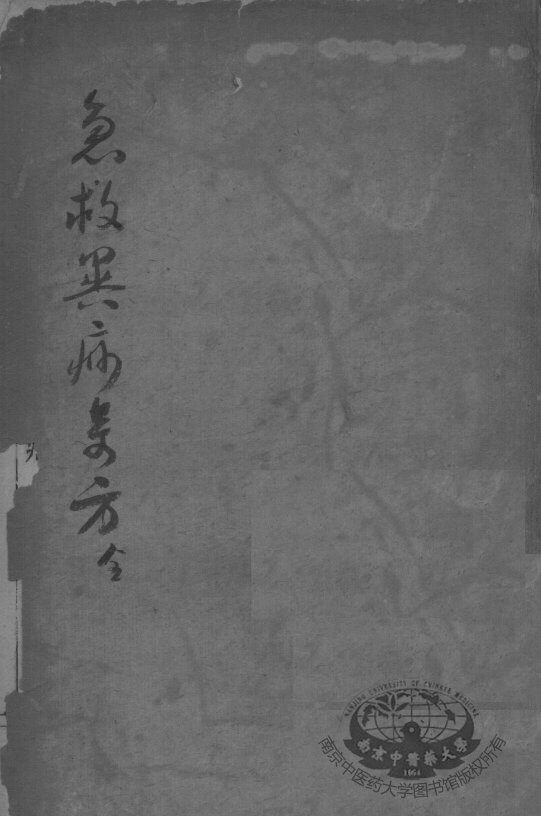 急救異病奇方 全
NANJING UNIVERSITY OF CHINESE MEDICINE
南京中醫藥大学
1954
南京中医药大学图书馆版权所有